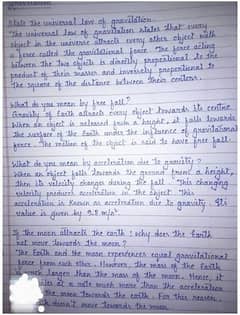 State the universal law of gravitation.
The universal law of gravitation states that every
object in the universe attracts every other object with
a force called the gravitational force. The force acting
between the two objects is directly proportional to the
product of their masses and inversely proportional to
the square of the distance between their centers.
What do you mean by free fall?
Gravity of Earth attracts every object towards its centre.
When an object is released from a height, it falls towards
the surface of the Earth under the influence of gravitational
force. The motion of the object is said to have free fall.
What do you mean by acceleration due to gravity?
When an object falls towards the ground from a height,
then its velocity changes during the fall. This changing
velocity produces acceleration in the object. This
acceleration is known as acceleration due to gravity. Its
value is given by 9.8 m/s².
If the moon attracts the earth, why does the Earth
not move towards the moon?
The Earth and the moon experience equal gravitational
force from each other. However, the mass of the Earth
much larger than the mass of the moon. Hence, it
at a rate much more than the acceleration
the moon towards the Earth. For this reason,
doesn't move towards the moon.